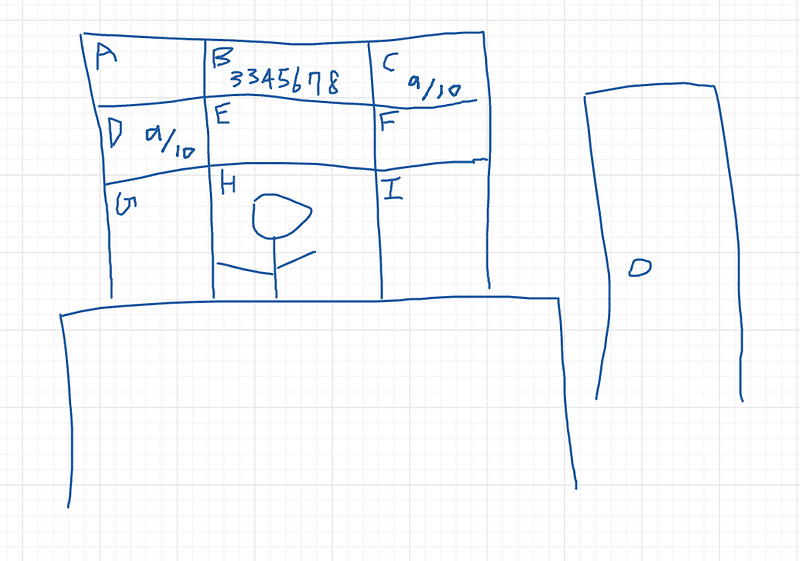 A
B
3345678
C
9/10
D
9/10
E
F
G
H
I